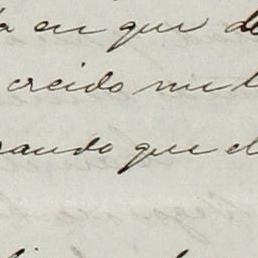 en que de
creido mu
rando que el